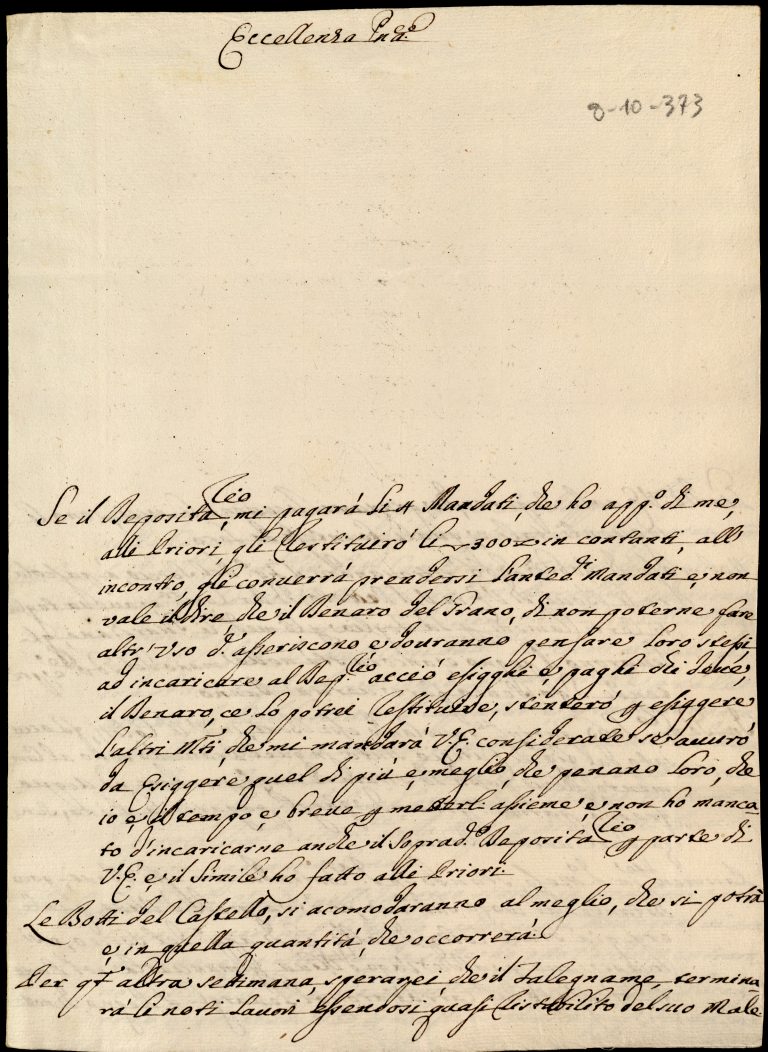 Eccellenza Pnã.
8-10-373
Se il Deposita.rio mi pagarà li 4 Mandati, che ho app.o di me,
alli Priori, gli restituirò li 300 in contanti, all'
incontro, gle converrà prendersi l'anted.i Mandati e, non
vale il dire che il Denaro del Grano, di non poterne fare
altr'Uso d.o asseriscono, e douranno pensare loro stessi
ad incaricare al Dep.rio acciò esigghi e paghi chi deve,
il Denaro, ce lo potrei restituire, stenterò p esiggere
l'altri Mti, che mi mandarà V.E. considerate se avurò
da esiggere quel di più e, meglio, che penano loro, che
io e, il tempo e, breve p meterli assieme, e non ho manca=
to d'incaricarne anche il Soprad.o Deposita.rio p parte di
V.E. e, il simile ho fatto alli Priori.
Le Botti del Castello, si acomodaranno al meglio, che si potrà
e, in quella quantità, che occorrerà.
Per qt'altra settimana, sperarei, che il Falegname, termina=
rà li noti lauori essendosi quasi ristabilito del suo Male.